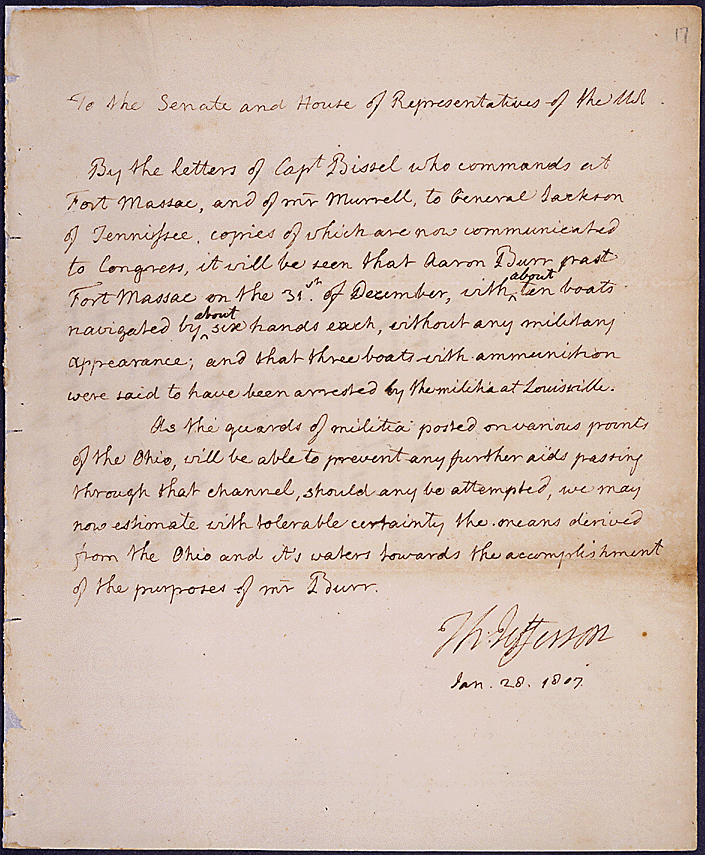 17
To the Senate and House of Representatives of the US.
By the letters of Capt Bissel who commands at
Fort Massac, and of mr Murrell, to General Jackson
of Tennissee, copies of which are now communicated
to Congress, it will be seen that Aaron Burr past
Fort Massac on the 31st. of December, with about ten boats
navigated by about six hands each, without any military
appearance; and that three boats with ammunition
were said to have been arrested by the militia at Louisville.
As the guards of militia posted on various points
of the Ohio, will be able to prevent any further aids passing
through that channel, should any be attempted, we may
now estimate with tolerable certainty the means derived
from the Ohio and it's waters towards the accomplishment
of the purposes of mr Burr.
Th: Jefferson
Jan. 28. 1807.